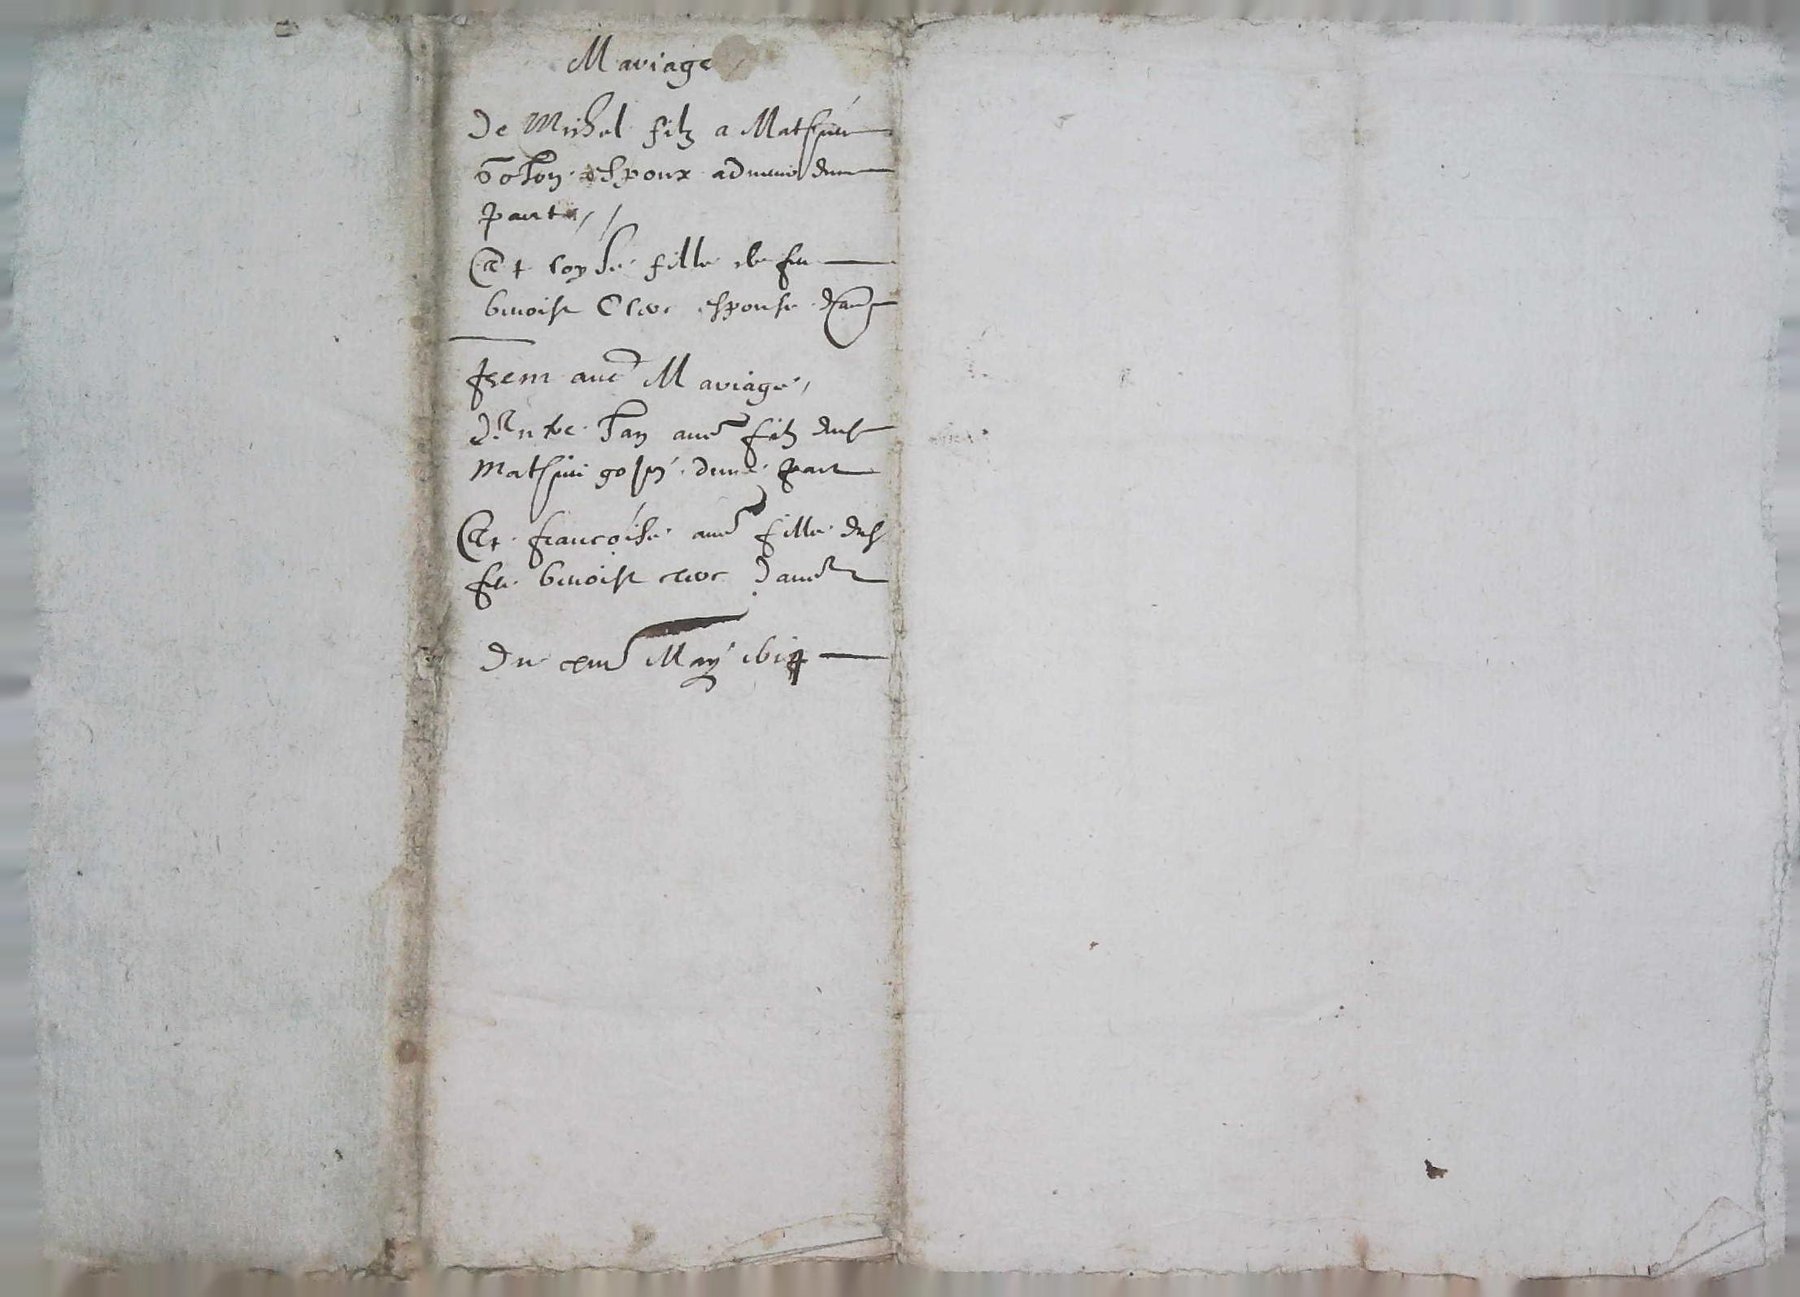 Mariage
De Michel filz a Mathieu
espoux advenir dune
part
Et loyse fille de feu
benoist Clerc espouse daut
Item aut Mariage
Dentre Jan aut filz dud
Mathieu dune part
Et francoise aut fille dud
feu benoist clerc daut
Du May